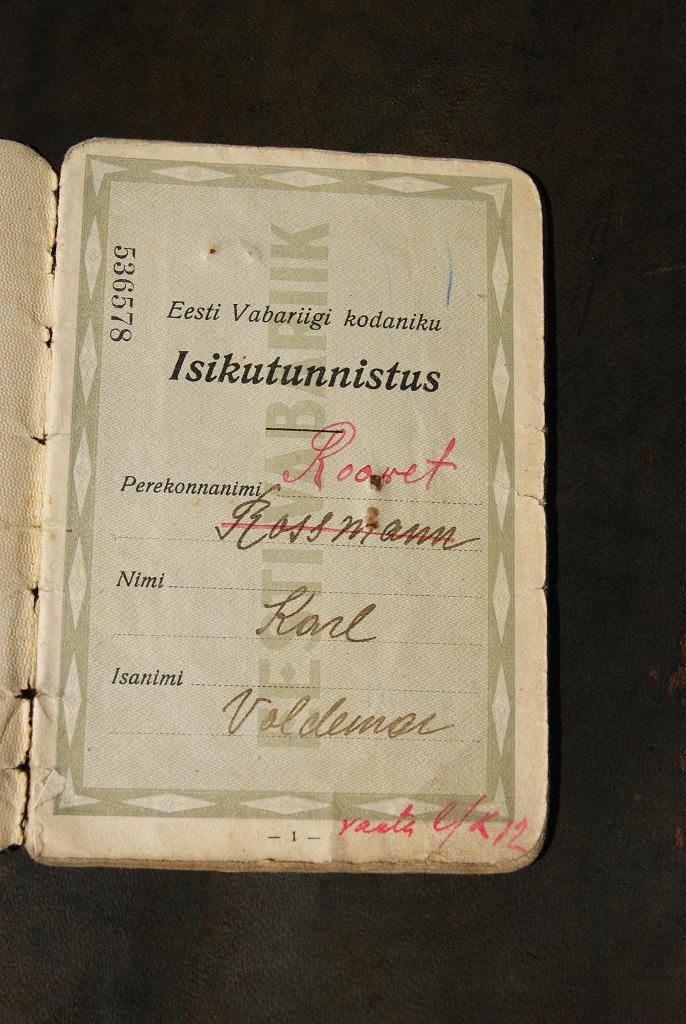 536578
EESTI VABARIIK
Eesti Vabariigi kodaniku
Isikutunnistus
Perekonnanimi Roowet
Rossmann
Nimi
Karl
Isanimi
Voldemar
— 1 — vaata